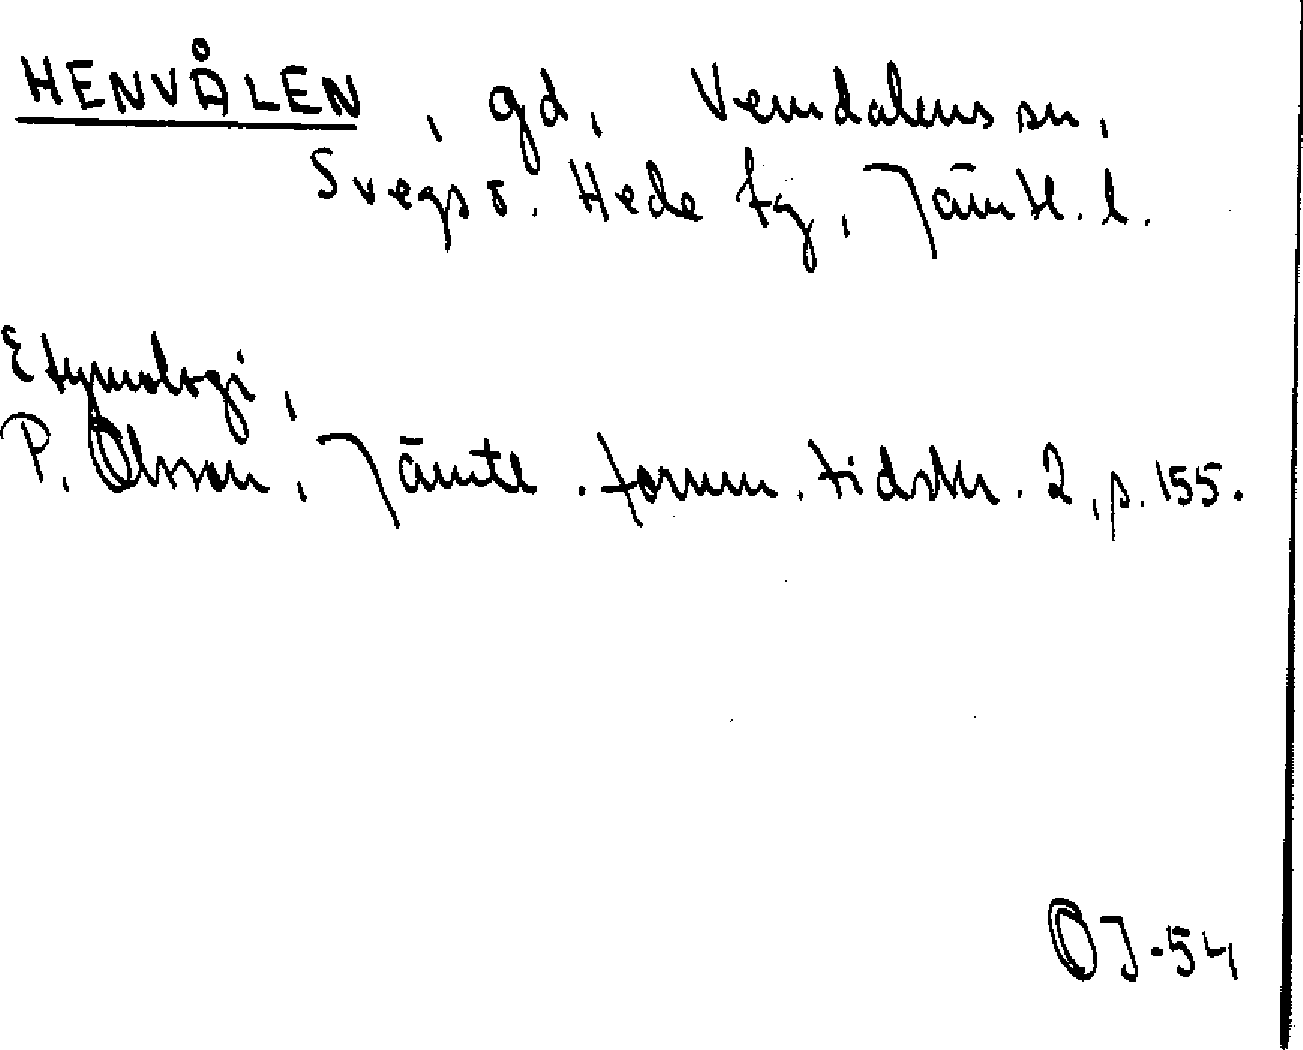 HENVÅLEN, gd, Vemdalens sn,
Svegs o. Hede tg, Jämtl. l.
Etymologi,
P. Olsson, Jämtl. fornm. tidskr. 2, p. 155.
OJ-54